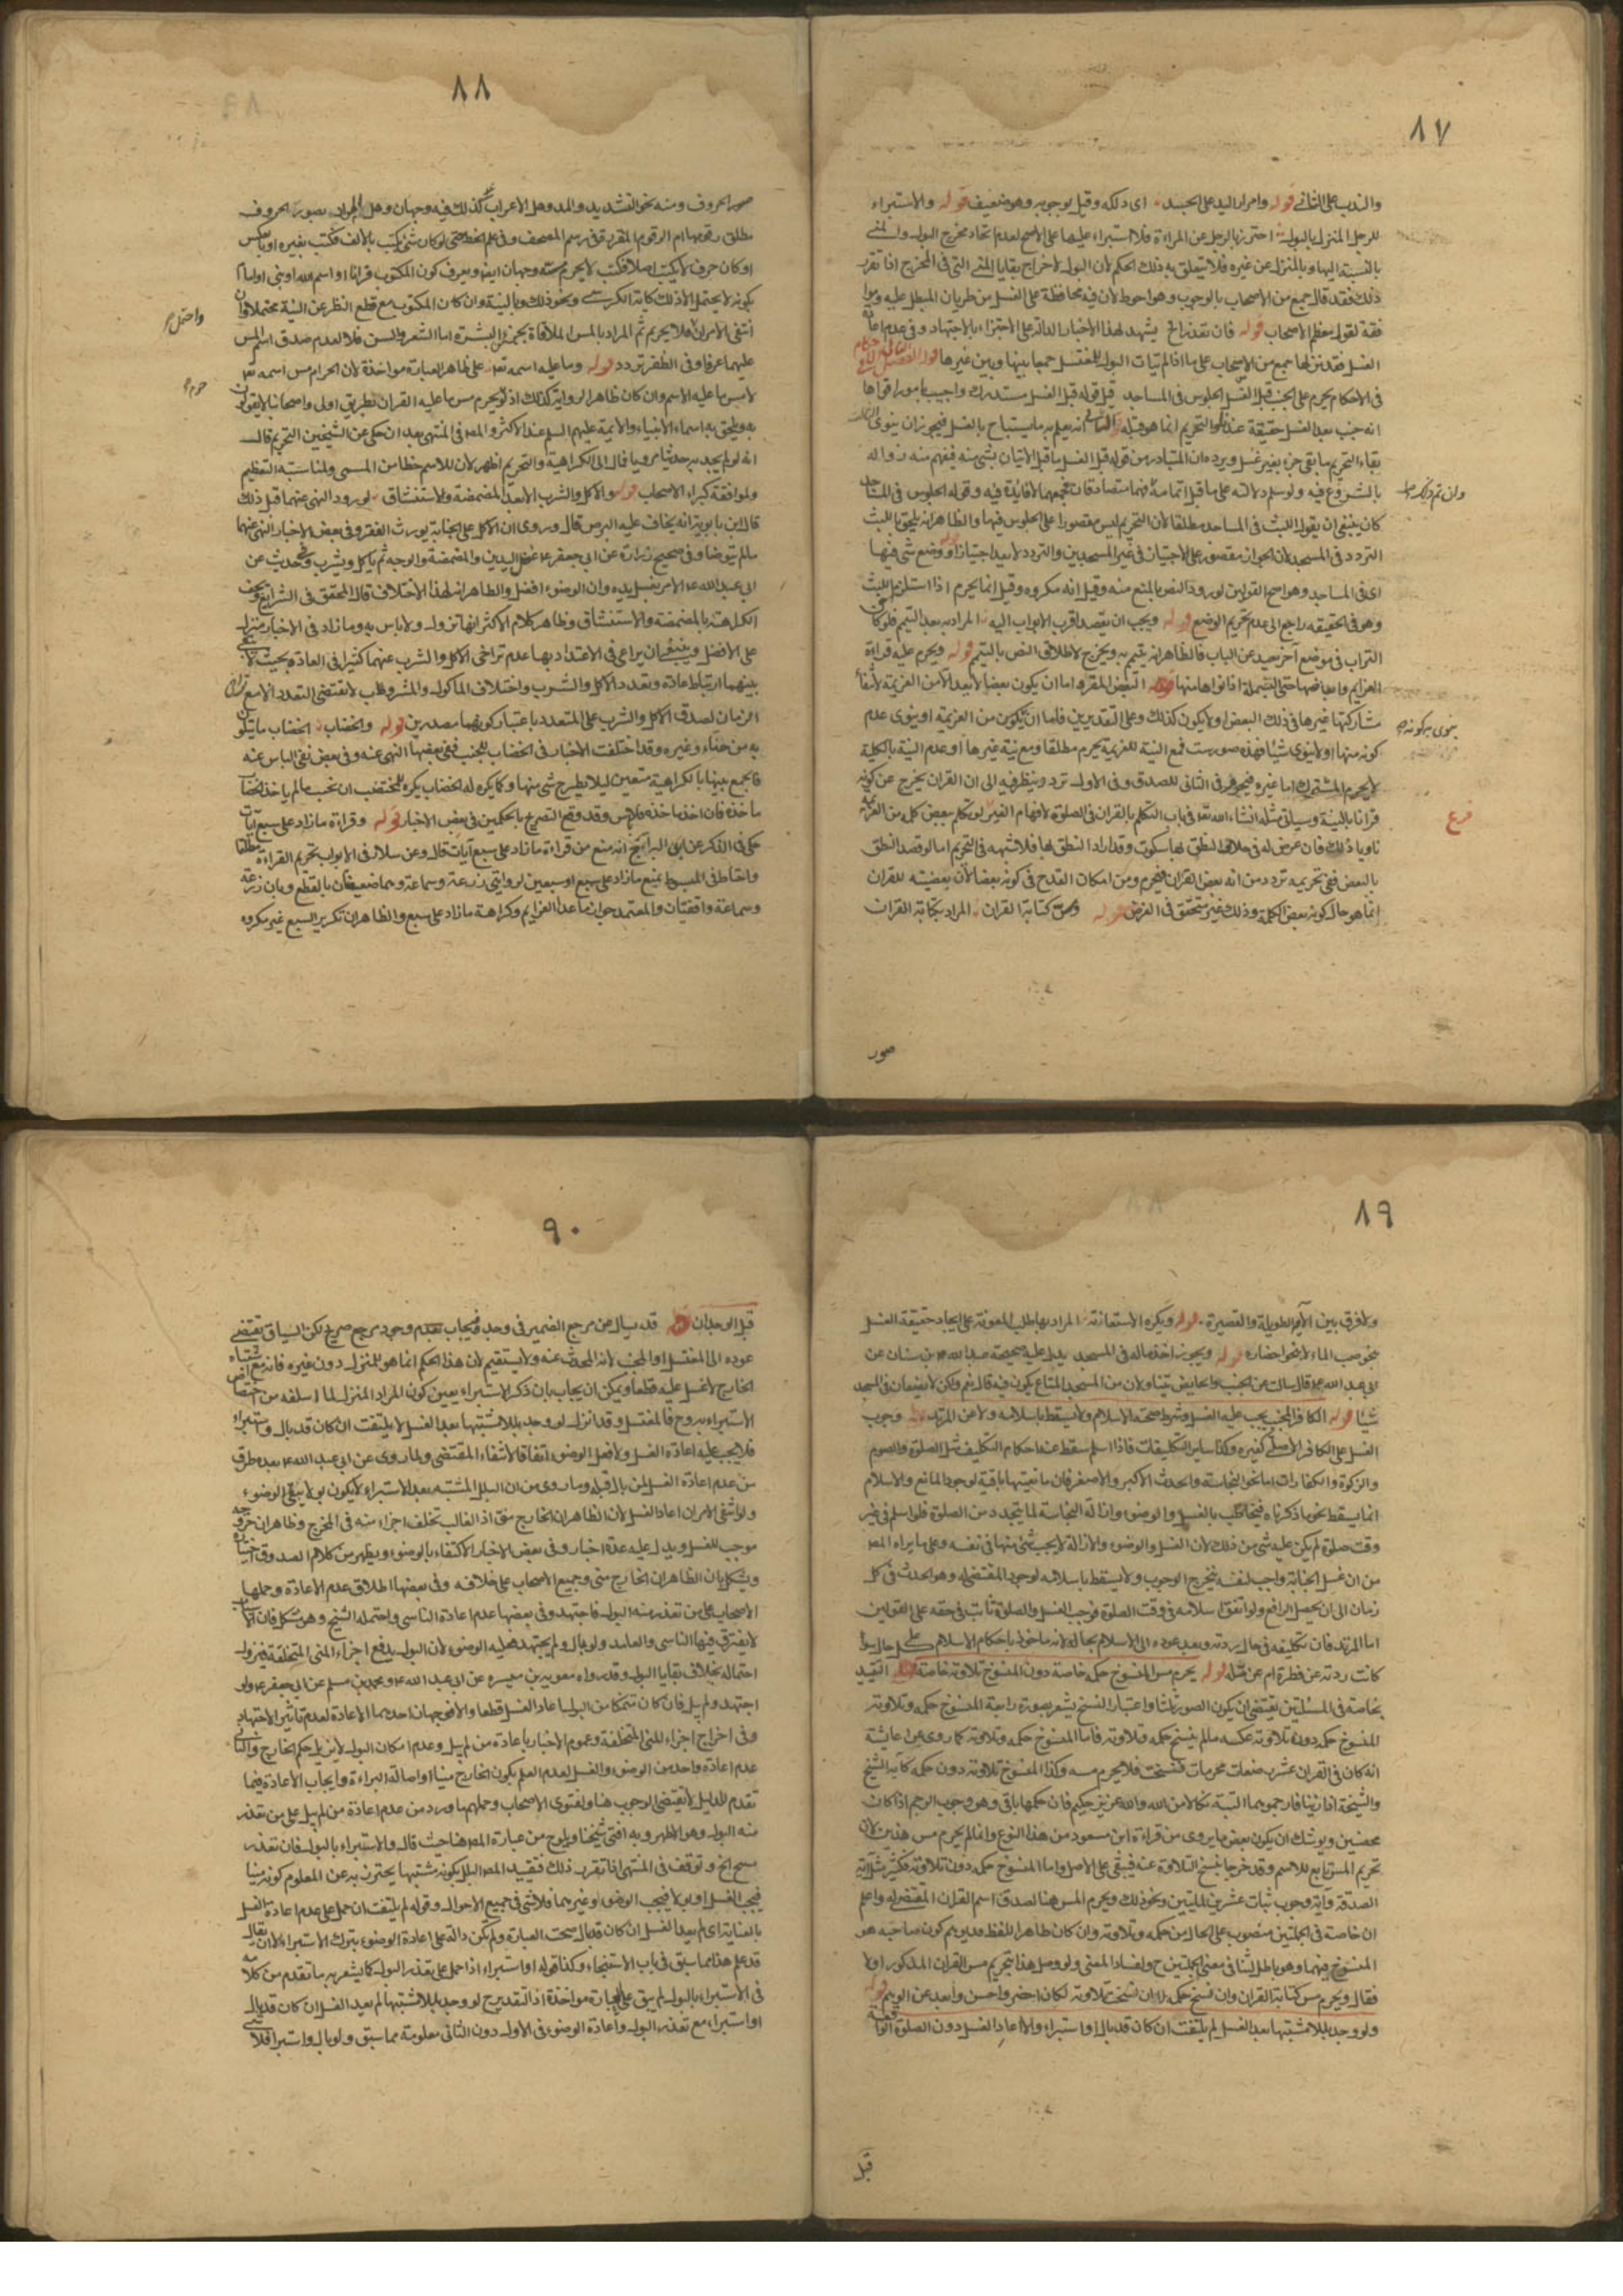 ٨٧
والندب على الثاني قوله وامرار اليد على الجسد اى دلكه وقيل بوجوبه وهو ضعيف قوله والاستبراء
للرجل المنزل بالبول احترز بالرجل عن المراءة فلا استبراء عليها على الاصح لعدم اتحاد مخرج البول والمنى
بالنسبة اليها وبالمنزل عن غيره فلا يتعلق به ذلك الحكم لان البول لاخراج بقايا المنى التى فى المخرج اذا تقرر
ذلك فقد قال جمع من الاصحاب بالوجوب وهو احوط لان فيه محافظة على الغسل من طريان المبطل عليه
لقول معظم الاصحاب قوله فان تعذر الخ يشهد لهذا الاخبار الدالة على الاجتزاء بالاجتهاد وفى عدم اعادة
الغسل فقد نزلها جمع من الاصحاب على ما اذا لم يتات البول للمغتسل جمعا بينها وبين غيرها
فى الاحكام يحرم على الجنب قبل الغسل الجلوس فى المساجد قيل قوله قبل الغسل مستدرك
انه جنب بعد الغسل حقيقة
بقاء التحريم ما بقى جزء بغير غسل ويرده ان المتبادر من قوله قبل الغسل ما قبل الاتيان بشئ منه فيفهم منه زواله
بالشروع فيه ولو سلم دلالته على ما قبل اتمامه فهما متصادقان فجمعهما لا فايدة فيه وقوله الجلوس فى المساجد
وان تم ذلك
كان ينبغى ان يقول اللبث فى المساجد مطلقا لان التحريم ليس مقصورا على الجلوس فيها والظاهر انه يلحق باللبث
التردد فى المسجد لان الجواز مقصور على الاجتيان فى غير المسجدين والتردد لا يعد اجتيازا قوله ووضع شئ فيها
اى فى المساجد وهو اصح القولين لورود النص بالمنع منه وقيل انه مكروه وقيل انما يحرم اذا استلزم اللبث
وهو فى الحقيقه راجع الى عدم تحريم الوضع قوله ويجب ان يقصد اقرب الابواب اليه المراد به بعد التيمم فلو كان
التراب فى موضع آخر بعيد عن الباب فالظاهر انه يتيمم به ويخرج لاطلاق النص بالتيمم قوله ويحرم عليه قراءة
العزايم وابعاضها حتى البسملة اذا نواها منها قوله البعض المقرو اما ان يكون بعضا لا يعد الامن العزيمة لانتفاء
مشاركتها غيرها فى ذلك البعض او لا يكون كذلك وعلى التقديرين فاما ان ينوى كونه من العزيمة او ينوى عدم
ينوى به كونه
كونه منها او لا ينوى شيئا فهذه صور ست فمع النية للعزيمة يحرم مطلقا ومع نية غيرها او عدم النية بالكلية
لا يحرم المشترك اما غيره فيحرم فى الثانى للصدق وفى الاول تردد وينظر فيه الى ان القران يخرج عن كونه
قرانا بالنية وسياتى مثله انشاء الله تعا فى باب التكلم بالقران فى الصلوة لافهام الغير لو تكلم ببعض كلمة من العزيمة
فرع
ناويا ذلك فان عرض له فى خلال النطق بها سكوت وقد اراد النطق بها فلا شبهه فى التحريم اما لو قصد النطق
بالبعض ففى تحريمه تردد من انه بعض القران فيحرم ومن امكان القدح فى كونه بعضا لان بعضيته للقران
انما هو حال كونه بعض الكلمة وذلك غير متحقق فى الفرض قوله ومس كتابة القران المراد بكتابة القران
صور
٨٨
صور الحروف ومنه نحو التشديد والمد وهل الاعراب كذلك فيه وجهان وهل المراد بصور الحروف
مطلق رقومها ام الرقوم المقررة فى رسم المصحف وفى علم الخط حتى لو كان شئ يكتب بالالف فكتب بغيره او بالعكس
او كان حرف لا يكتب اصلا فكتب لا يحرم مسه وجهان ايضا ويعرف كون المكتوب قرانا او اسم الله او نبى او امام
بكونه لا يحتمل الا ذلك كاية الكرسى ونحو ذلك وبالنية وان كان المكتوب مع قطع النظر عن النية محتملا وان
واحتمل
انتفى الامران فلا يحرم ثم المراد بالمس الملاقاة بجزء من البشرة اما الشعر والسن فلا لعدم صدق اسم المس
عليهما عرفا وفى الظفر تردد قوله وما عليه اسمه تعا على ظاهر العبارة مواخذة لان الحرام مس اسمه تعا
حرم
لا مس ما عليه الاسم وان كان ظاهر الرواية كذلك اذ لو يحرم مس ما عليه القران بطريق اولى واصحابنا لا يقولون
به ويلحق به اسماء الانبياء والائمة عليهم السلم عند الاكثر والمصنف فى المنتهى بعد ان حكى عن الشيخين التحريم قال
انه لم يجد به حديثا مرويا فمال الى الكراهية والتحريم اظهر لان للاسم حظا من المسمى ولمناسبة التعظيم
ولموافقة كبراء الاصحاب قوله والاكل والشرب الا بعد المضمضة والاستنشاق لورود النهى عنهما قبل ذلك
قال ابن بابويه انه يخاف عليه البرص قال وروى ان الاكل على الجنابة يورث الفقر وفى بعض الاخبار النهى عنهما
ما لم يتوضا وفى صحيح زرارة عن ابى جعفر ع غسل اليدين والمضمضة والوجه ثم ياكل ويشرب وحديث عن
ابى عبد الله ع الامر بغسل يده وان الوضوء افضل والظاهر انه لهذا الاختلاف قال المحقق فى الشرايع تخف
الكراهة بالمضمضة والاستنشاق وظاهر كلام الاكثر انها تزول ولا باس به وما زاد فى الاخبار منزل
على الافضل وينبغى ان يراعى فى الاعتداد بها عدم تراخى الاكل والشرب عنهما كثيرا فى العادة بحيث لا يبقى
بينهما ارتباط عادة وتعدد الاكل والشرب واختلاف الماكول والمشروب لا يقتضى التعدد الا مع تراخى
الزمان لصدق الاكل والشرب على المتعدد باعتبار كونهما مصدرين قوله والخضاب الخضاب ما يتلون
به من حناء وغيره وقد اختلفت الاخبار فى الخضاب للجنب ففى بعضها النهى عنه وفى بعض نفى الباس عنه
فالجمع بينها بالكراهية متعين لئلا يطرح شئ منها وكما يكره له الخضاب يكره للمختضب ان يجنب ما لم ياخذ الخضاب
ماخذه فان اخذ ماخذه فلا باس وقد وقع التصريح بالحكمين فى بعض الاخبار قوله وقراءة ما زاد على سبع آيات
حكى فى الذكر عن ابن البراج انه منع من قراءة ما زاد على سبع آيات قال وعن سلار فى الابواب تحريم القراءة مطلقا
واحتاط فى المبسوط بمنع ما زاد على سبع او سبعين لروايتى زرعة وسماعة وهما ضعيفتان بالقطع وبان زرعة
وسماعة واقفيان والمعتمد جواز ما عدا العزايم وكراهة ما زاد على سبع والظاهر ان تكرير السبع غير مكروه
٨٩
ولا فرق بين الآية الطويلة والقصيرة قوله ويكره الاستعانة المراد بها طلب المعونة على ايجاد حقيقة الغسل
نحو صب الماء لا نحو احضاره قوله ويجوز اخذ ماله فى المسجد يدل عليه صحيحة عبد الله بن سنان عن
ابى عبد الله ع قال سالته عن الجنب والحايض يتناولان من المسجد المتاع يكون فيه قال نعم ولكن لا يضعان فى المسجد
شيئا قوله الكافر المجنب يجب عليه الغسل وشرط صحته الاسلام ولا يسقط باسلامه ولا عن المرتد وجوب
الغسل على الكافر الاصلى كغيره وكذا ساير التكليفات فاذا اسلم سقط عنه احكام التكليف مثل الصلوة والصوم
والزكوة والكفارات اما نحو النجاسة والحدث الاكبر والاصغر فان مانعيتها باقية لوجود المانع والاسلام
انما يسقط نحو ما ذكرناه فيخاطب بالغسل والوضوء وازالة النجاسة لما يتجدد من الصلوة فلو اسلم فى غير
وقت صلوة لم يكن عليه شئ من ذلك لان الغسل والوضوء والازالة لا يجب شئ منها فى نفسه وعلى ما يراه المصنف
من ان غسل الجنابة واجب لنفسه يتخرج الوجوب ولا يسقط باسلامه لوجود المقتضى له وهو الحدث فى كل
زمان الى ان يحصل الرافع ولو اتفق اسلامه فى وقت الصلوة فوجب الغسل والصلوة ثابت فى حقه على القولين
اما المرتد فان تكليفه فى حال ردته وبعد عوده الى الاسلام بحاله لانه ماخوذ باحكام الاسلام على كل حال سواء
كانت ردته عن فطرة ام عن ملة قوله يحرم مس المنسوخ حكمه خاصة دون المنسوخ تلاوته خاصة قوله التقييد
بخاصة فى المسئلتين يقتضى ان يكون الصور ثلثا واعتبار النسخ يشعر بصورة رابعة المنسوخ حكمه وتلاوته
المنسوخ حكمه دون تلاوته عكسه ما لم ينسخ حكمه وتلاوته فاما المنسوخ حكمه وتلاوته كما روى عن عايشة
انه كان فى القران عشر رضعات محرمات فنسخت فلا يحرم مسه وكذا المنسوخ تلاوته دون حكمه كاية الشيخ
والشيخة اذا زنيا فارجموهما البتة نكالا من الله والله عزيز حكيم فان حكمها باقى وهو وجوب الرجم اذا كانا
محصنين ويوشك ان يكون بعض ما يروى من قراءة ابن مسعود من هذا النوع وانما لم يحرم مس هذين لان
تحريم المس تابع للاسم وقد خرجا بنسخ التلاوة عنه فيبقى على الاصل واما المنسوخ حكمه دون تلاوته فكثير مثل آية
الصدقة وآية وجوب ثبات عشرين للمايتين ونحو ذلك ويحرم المس هنا لصدق اسم القران المقتضى له واعلم
ان خاصة فى الجملتين منصوب على الحال من حكمه وتلاوته وان كان ظاهر اللفظ قد يوهم كون صاحبه هو
المنسوخ فيهما وهو باطل لتنافى معنى الجملتين ح وافساد المعنى ولو وصل هذا بتحريم مس القران المذكور اولا
فقال ويحرم مس كتابة القران وان نسخ حكمه لا ان نسخت تلاوته لكان اخصر واحسن وابعد عن الوهم قوله
ولو وجد بللا مشتبها بعد الغسل لم يلتفت ان كان قد بال او استبراء والا اعاد الغسل دون الصلوة الواقعة
قبل
٩٠
قبل الوجدان قوله قد يسال عن مرجع الضمير فى وجد فيجاب بعدم وجود مرجع صريح لكن السياق يقتضى
عوده الى المغتسل او المجنب لانه المحدث عنه ولا يستقيم لان هذا الحكم انما هو للمنزل دون غيره فانه مع اشتباه
الخارج لا غسل عليه قطعا ويمكن ان يجاب بان ذكر الاستبراء يعين كون المراد المنزل لما اسلفه من اختصاص
الاستبراء به وح فالمغتسل وقد انزل لو وجد بللا مشتبها بعد الغسل لا يلتفت ان كان قد بال واستبراء
فلا يجب عليه اعادة الغسل ولا فعل الوضوء اتفاقا لانتفاء المقتضى ولما روى عن ابى عبد الله ع بعدة طرق
من عدم اعادة الغسل لمن بال قبله وما روى من ان البلل المشتبه بعد الاستبراء لا يكون بولا يبقى الوضوء
ولو انتفى الامران اعاد الغسل لان الظاهر ان الخارج منى اذ الغالب تخلف اجزاء منه فى المخرج وظاهر ان خروجه
موجب للغسل ويدل عليه عدة اخبار وفى بعض الاخبار الاكتفاء بالوضوء ويظهر من كلام الصدوق اختياره
ويشكل بان الظاهر ان الخارج منى وجميع الاصحاب على خلافه وفى بعضها اطلاق عدم الاعادة وحملها
الاصحاب على من تعذر منه البول فاجتهد وفى بعضها عدم اعادة الناسى واحتمله الشيخ وهو مشكل فان الاسباب
لا يفترق فيها الناسى والعامد ولو بال ولم يجتهد فعليه الوضوء لان البول يدفع اجزاء المنى المتخلفة فيزول
احتماله بخلاف بقايا البول وقد رواه معوية بن ميسره عن ابى عبد الله ع ومحمد بن مسلم عن ابى جعفر ع ولو
اجتهد ولم يبل فان كان متمكنا من البول اعاد الغسل قطعا والا فوجهان احدهما الاعادة لعدم تاثير الاجتهاد
وفى اخراج اجزاء المنى المتخلفة وعموم الاخبار باعادة من لم يبل وعدم امكان البول لا يزيل حكم الخارج والثانى
عدم اعادة واحد من الوضوء والغسل لعدم العلم بكون الخارج منيا اذا اصالة البراءة وايجاب الاعادة فيما
تقدم للدليل لا يقتضى الوجوب هنا ولفتوى الاصحاب وحملهم ما ورد من عدم اعادة من لم يبل على من تعذر
منه البول وهو الاظهر وبه افتى شيخنا ويلوح من عبارة المصنف هنا حيث قال والاستبراء بالبول فان تعذر
مسح الخ وتوقف فى المنتهى اذا تقرر ذلك فتقييد المصنف البلل بكونه مشتبها يحترز به عن المعلوم كونه منيا
فيجب الغسل او بولا فيجب الوضوء او غيرهما فلا شئ فى جميع الاحوال وقوله لم يلتفت ان حمل على عدم اعادة الغسل
بالعناية اى لم يعد الغسل ان كان قد بال صحت العبارة ولم تكن دالة على اعادة الوضوء بترك الاستبراء الا ان يقال
قد علم هذا مما سبق فى باب الاستنجاء وكذا قوله او استبراء اذا حمل على تعذر البول كما يشعر به ما تقدم من كلامه
فى الاستبراء بالبول لم يبق على العبارة مواخذة اذ التقدير ح لو وجد بللا مشتبها لم يعد الغسل ان كان قد بال
او استبراء مع تعذر البول واعادة الوضوء فى الاول دون الثانى معلومة مما سبق ولو بال واستبرا فلا شئ